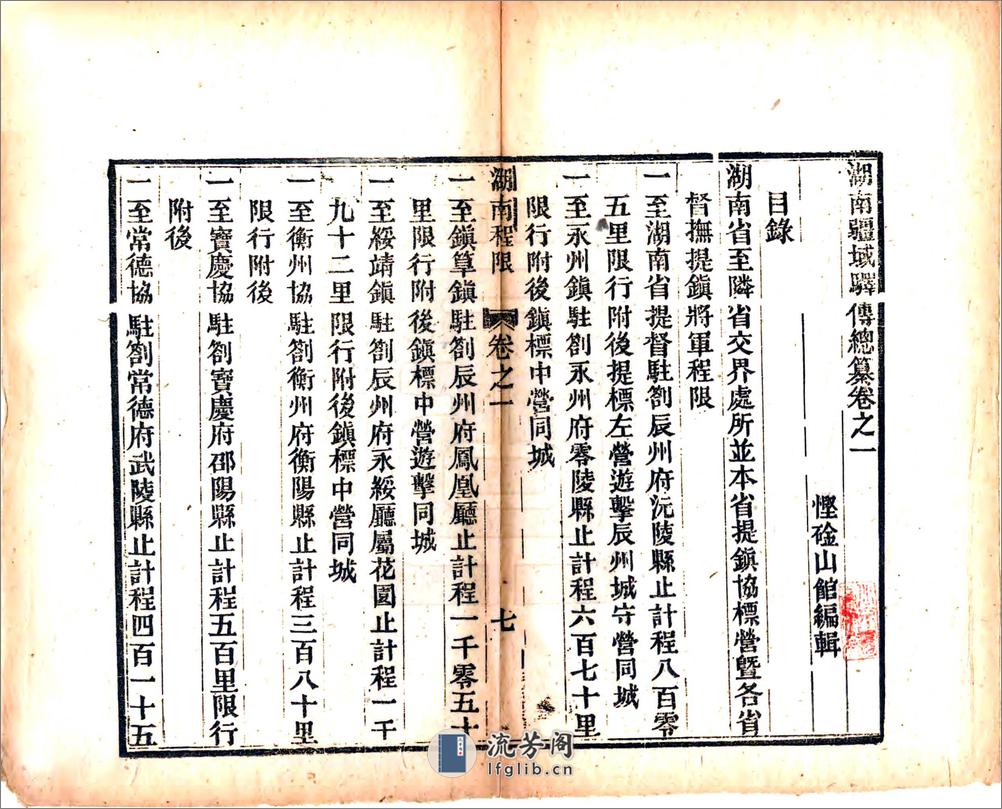 湖南疆域驛傳總纂卷之一
慳硷山館編輯
目錄
湖南省至隣省交界處所並本省提鎮協標營暨各省
督撫提鎮將軍程限
一至湖南省提督駐劄辰州府沅陵縣止計程八百零
五里限行附後提標左營遊擊辰州城守營同城
一至永州鎮駐劄永州府零陵縣止計程六百七十里
限行附後鎮標中營同城
湖南程限 卷之一 七
一至鎮筸鎮駐劄辰州府鳳凰廳止計程一千零五十
里限行附後鎮標中營遊擊同城
一至綏靖鎮駐劄辰州府永綏廳屬花園止計程一千
九十二里限行附後鎮標中營同城
一至衡州協駐劄衡州府衡陽縣止計程三百八十里
限行附後
一至寶慶協駐劄寶慶府邵陽縣止計程五百里限行
附後
一至常德協駐劄常德府武陵縣止計程四百一十五
流芳阁
lfglib.cn